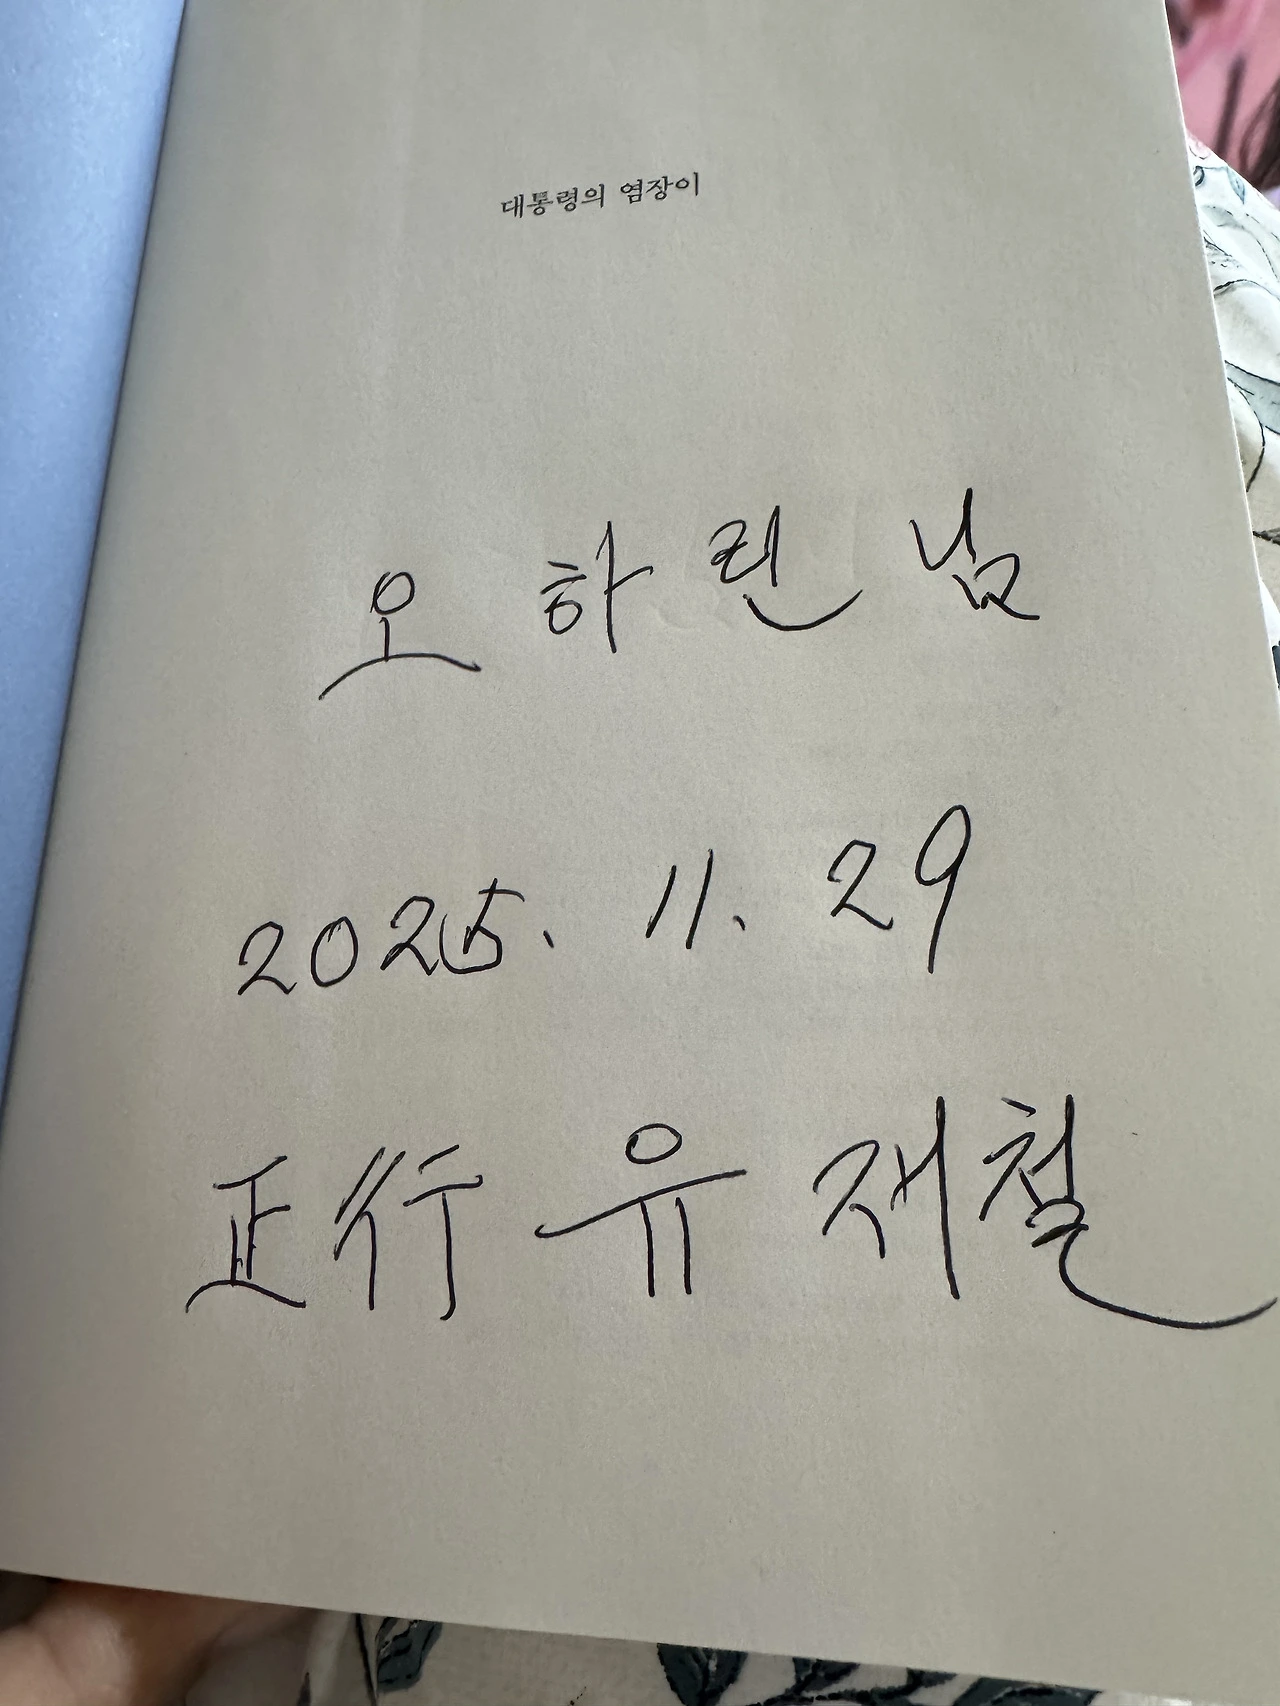 대통령의 염장이
오 하린 님
2025. 11. 29
正行 유재철